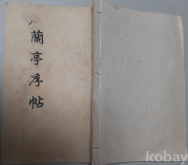 蘭亭序帖
kobay